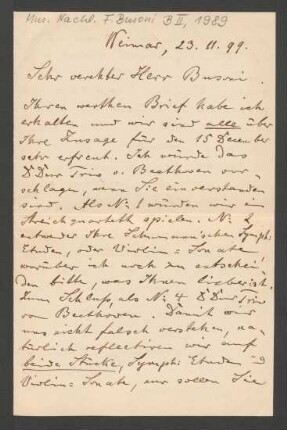 Mus. Nachl. F. Busoni B II, 1989
Weimar, 23. 11. 99.
Sehr verehrter Herr Busoni.
Ihren werthen Brief habe ich
erhalten und wir sind alle über
Ihre Zusage für den 15 December
sehr erfreut. Ich würde das
D Dur Trio v. Beethoven vor-
schlagen, wenn Sie einverstanden
sind. Als No 1 würden wir ein
Streichquartett spielen. No 2
entweder Ihre Schumann'schen Symph.
Etuden, oder Violin-Sonate
worüber ich noch zu entschei-
den bitte, was Ihnen lieber ist.
Zum Schluß, als No 4 D Dur Trio
von Beethoven. Damit wir
uns nicht falsch verstehen, na-
türlich reflectiren wir auf
beide Stücke, Symph. Etuden und
Violin-Sonate, nur sollen Sie